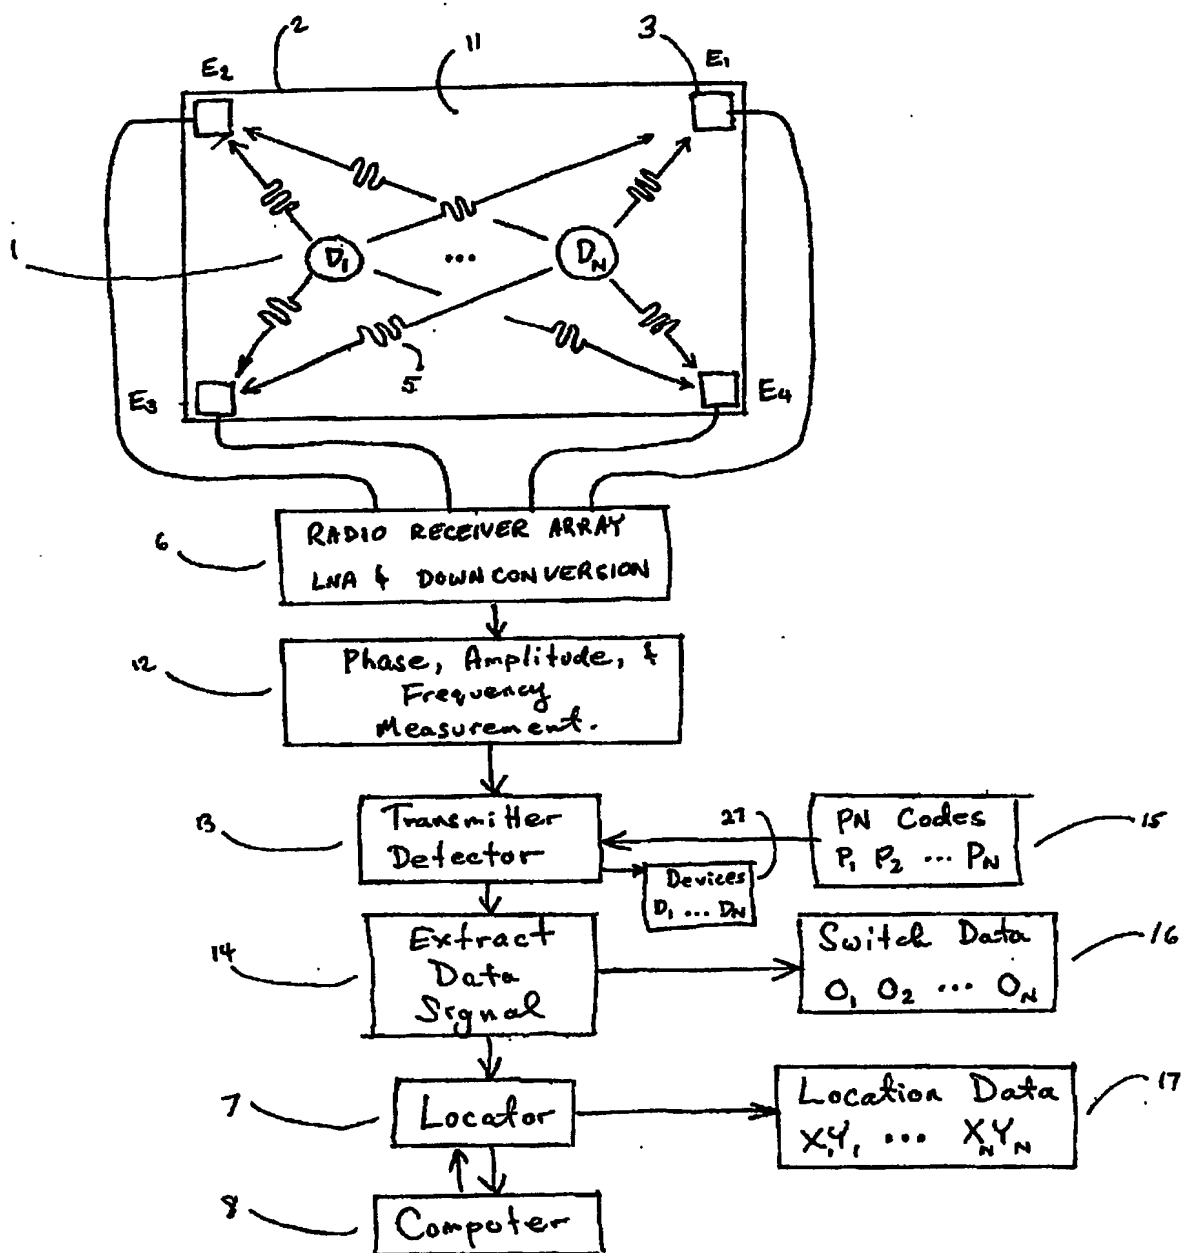 2
11
3
E₂
E₁
1
D₁
...
D_N
5
E₃
E₄
6
RADIO RECEIVER ARRAY
LNA & DOWNCONVERSION
12
Phase, Amplitude, &
Frequency
Measurement.
13
Transmitter
Detector
27
PN Codes
P₁ P₂ ... P_N
15
Devices
D₁ ... D_N
14
Extract
Data
Signal
Switch Data
O₁ O₂ ... O_N
16
7
Locator
Location Data
X₁Y₁ ... X_NY_N
17
8
Computer